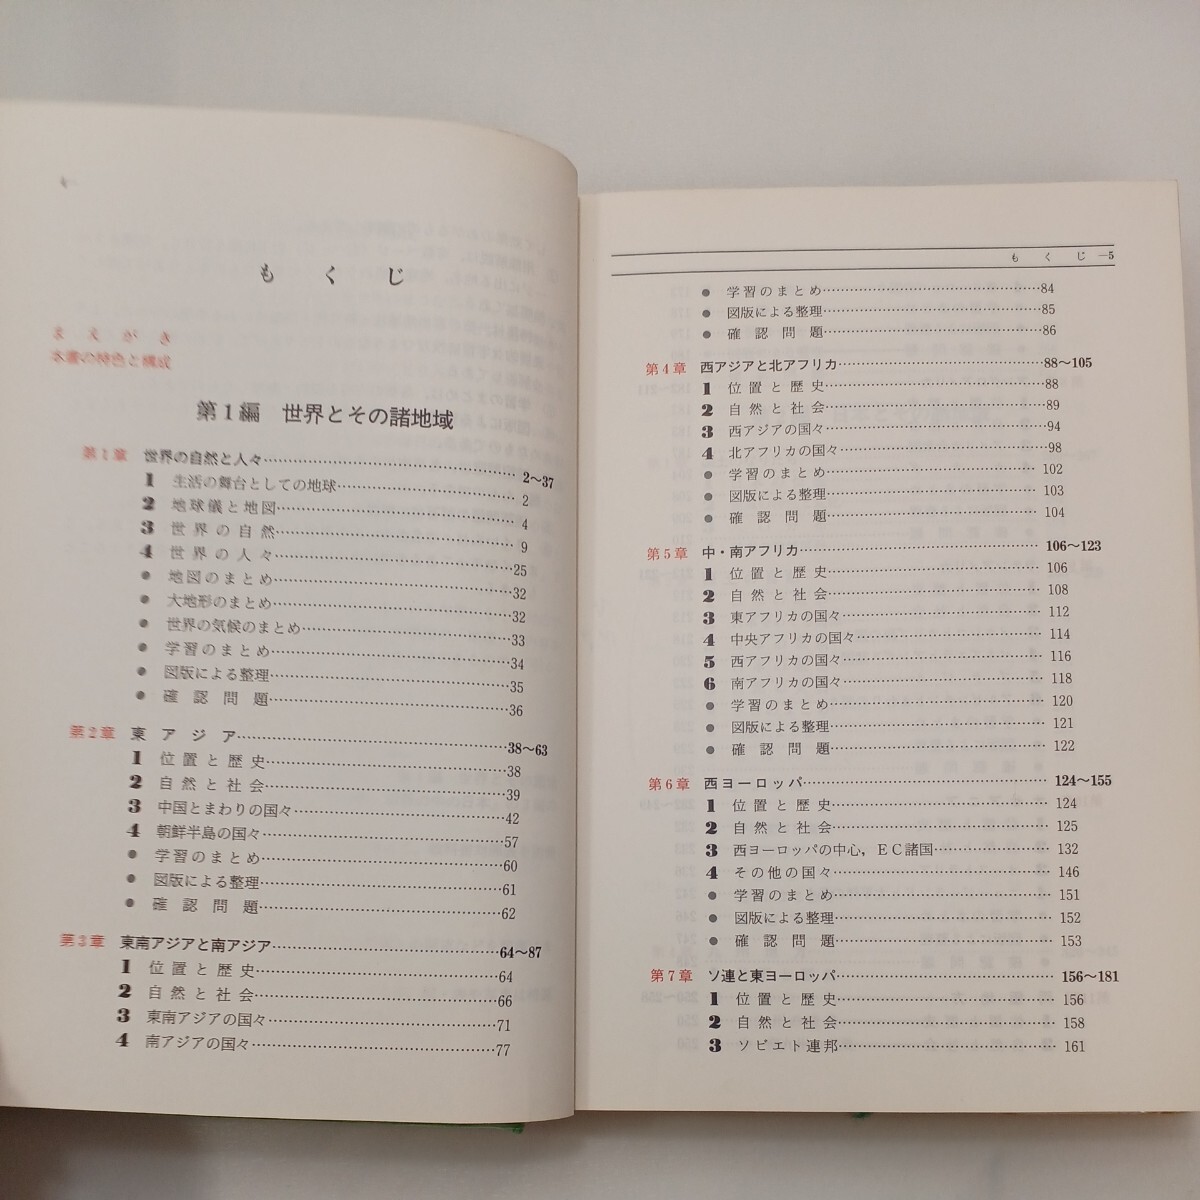 もくじ
まえがき
本書の特色と構成
第1編 世界とその諸地域
第1章 世界の自然と人々……2〜37
1 生活の舞台としての地球……2
2 地球儀と地図……4
3 世界の自然……9
4 世界の人々……25
● 地図のまとめ……32
● 大地形のまとめ……32
● 世界の気候のまとめ……33
● 学習のまとめ……34
● 図版による整理……35
● 確認問題……36
第2章 東アジア……38〜63
1 位置と歴史……38
2 自然と社会……39
3 中国とまわりの国々……42
4 朝鮮半島の国々……57
● 学習のまとめ……60
● 図版による整理……61
● 確認問題……62
第3章 東南アジアと南アジア……64〜87
1 位置と歴史……64
2 自然と社会……66
3 東南アジアの国々……71
4 南アジアの国々……77
もくじ —5
● 学習のまとめ……84
● 図版による整理……85
● 確認問題……86
第4章 西アジアと北アフリカ……88〜105
1 位置と歴史……88
2 自然と社会……89
3 西アジアの国々……94
4 北アフリカの国々……98
● 学習のまとめ……102
● 図版による整理……103
● 確認問題……104
第5章 中・南アフリカ……106〜123
1 位置と歴史……106
2 自然と社会……108
3 東アフリカの国々……112
4 中央アフリカの国々……114
5 西アフリカの国々……116
6 南アフリカの国々……118
● 学習のまとめ……120
● 図版による整理……121
● 確認問題……122
第6章 西ヨーロッパ……124〜155
1 位置と歴史……124
2 自然と社会……125
3 西ヨーロッパの中心，EC諸国……132
4 その他の国々……146
● 学習のまとめ……151
● 図版による整理……152
● 確認問題……153
第7章 ソ連と東ヨーロッパ……156〜181
1 位置と歴史……156
2 自然と社会……158
3 ソビエト連邦……161